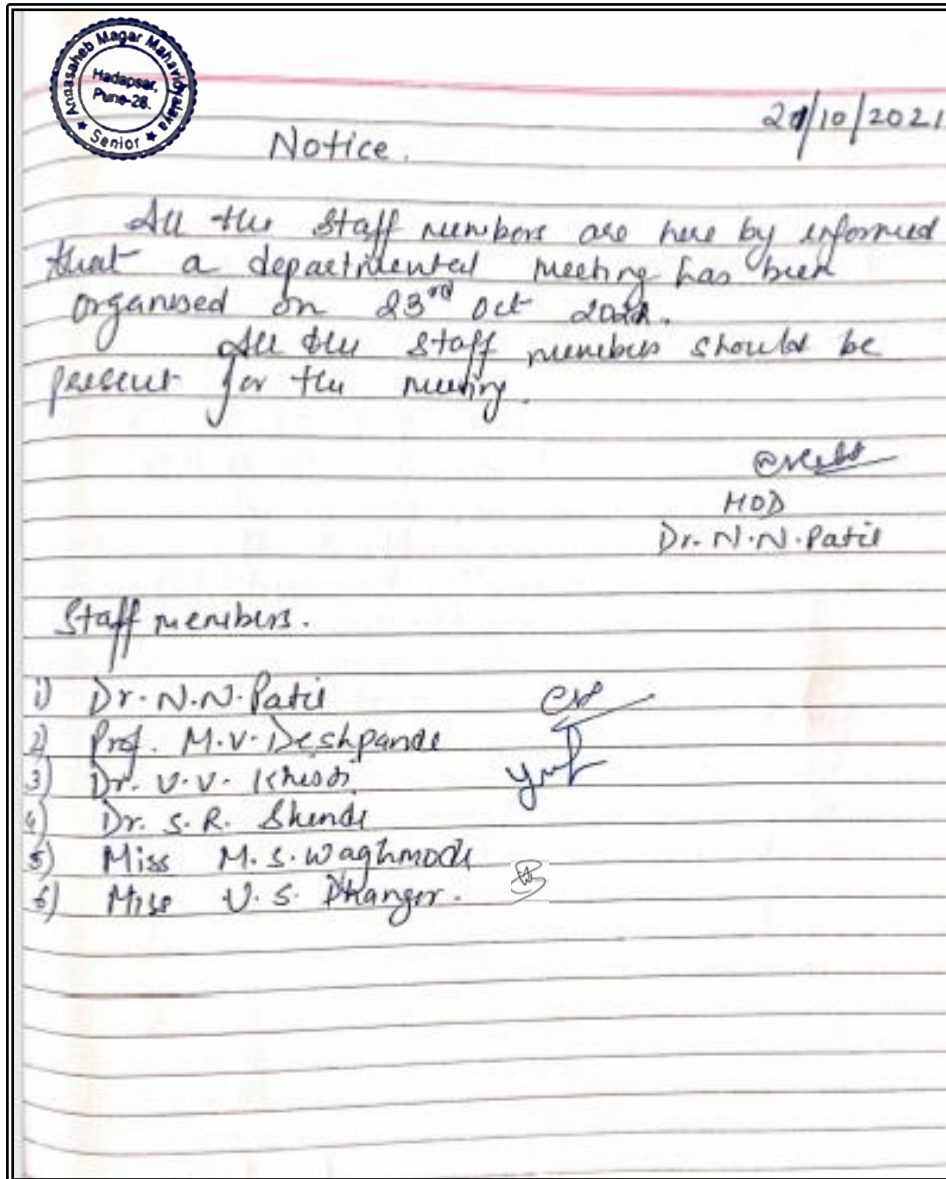 Annasaheb Magar Mahavidyalaya
Hadapsar,
Pune-28.
★ Senior ★
21/10/2021
Notice.
All the staff members are here by informed
that a departmental meeting has been
organised on 23rd Oct 2021.
All the staff members should be
present for the meeting.
HOD
Dr. N. N. Patil
Staff members.
1) Dr. N. N. Patil
2) Prof. M. V. Deshpande
3) Dr. V. V.
4) Dr. S. R. Shende
5) Miss M. S. Waghmode
6) Miss U. S. Dhanger.